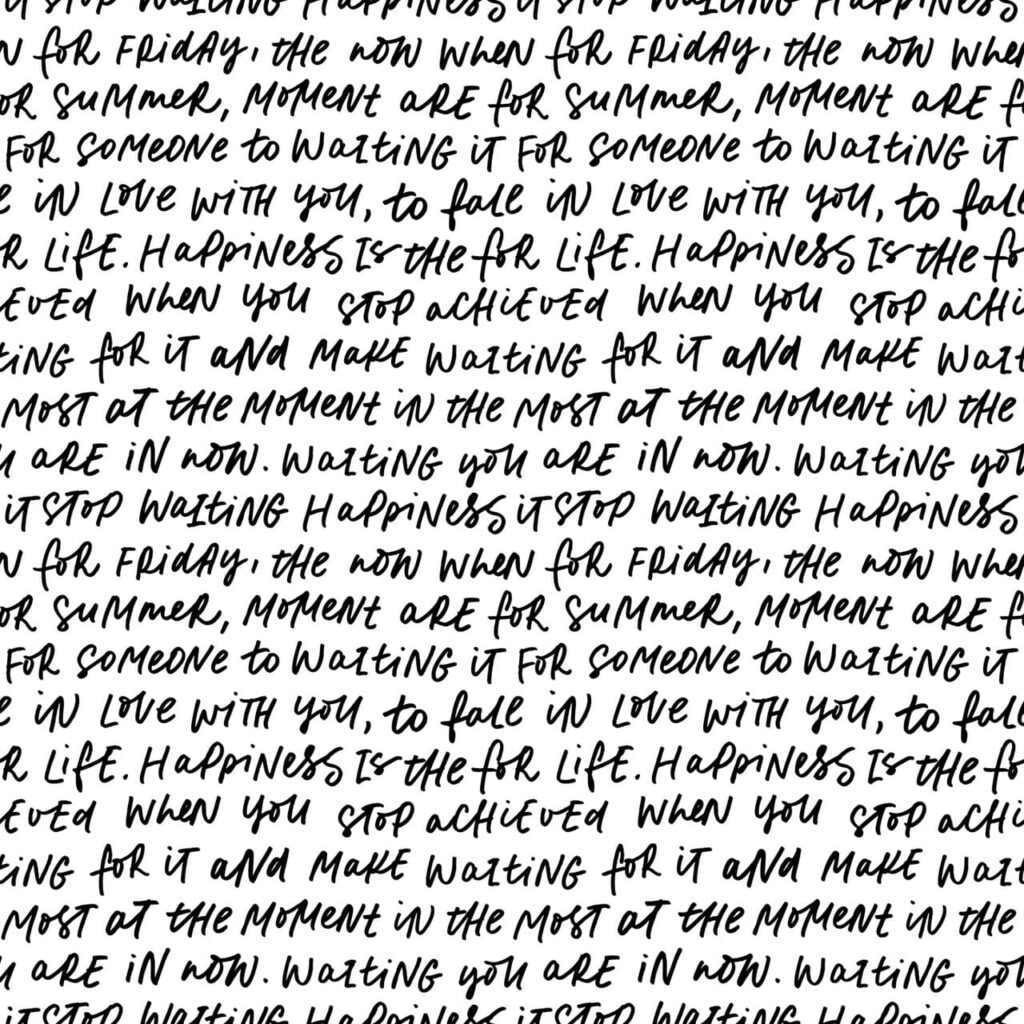 it STOP WAITING HAPPINESS it STOP WAITING HAPPINESS
N FOR FRIDAY, the NOW WHEN FOR FRIDAY, the NOW WHEN
OR SUMMER, MOMENT ARE FOR SUMMER, MOMENT ARE F
FOR SOMEONE to WAITING IT FOR SOMEONE to WAITING IT
E IN LOVE WITH YOU, to fall IN LOVE WITH YOU, to fall
R LIFE. HAPPINESS IS the FOR LIFE. HAPPINESS IS the FO
EVED WHEN YOU STOP ACHIEVED WHEN YOU STOP ACHI
TING FOR IT AND MAKE WAITING FOR IT AND MAKE WAIT
MOST AT the MOMENT IN the MOST AT the MOMENT IN the
U ARE IN NOW. WAITING YOU ARE IN NOW. WAITING YOU
IT STOP WAITING HAPPINESS IT STOP WAITING HAPPINESS
N FOR FRIDAY, the NOW WHEN FOR FRIDAY, the NOW WHEN
OR SUMMER, MOMENT ARE FOR SUMMER, MOMENT ARE F
FOR SOMEONE to WAITING IT FOR SOMEONE to WAITING IT
E IN LOVE WITH YOU, to fall IN LOVE WITH YOU, to fall
R LIFE. HAPPINESS IS the FOR LIFE. HAPPINESS IS the FO
EVED WHEN YOU STOP ACHIEVED WHEN YOU STOP ACHI
TING FOR IT AND MAKE WAITING FOR IT AND MAKE WAIT
MOST AT the MOMENT IN the MOST AT the MOMENT IN the
U ARE IN NOW. WAITING YOU ARE IN NOW. WAITING YOU
IT STOP WAITING HAPPINESS IT STOP WAITING HAPPINESS